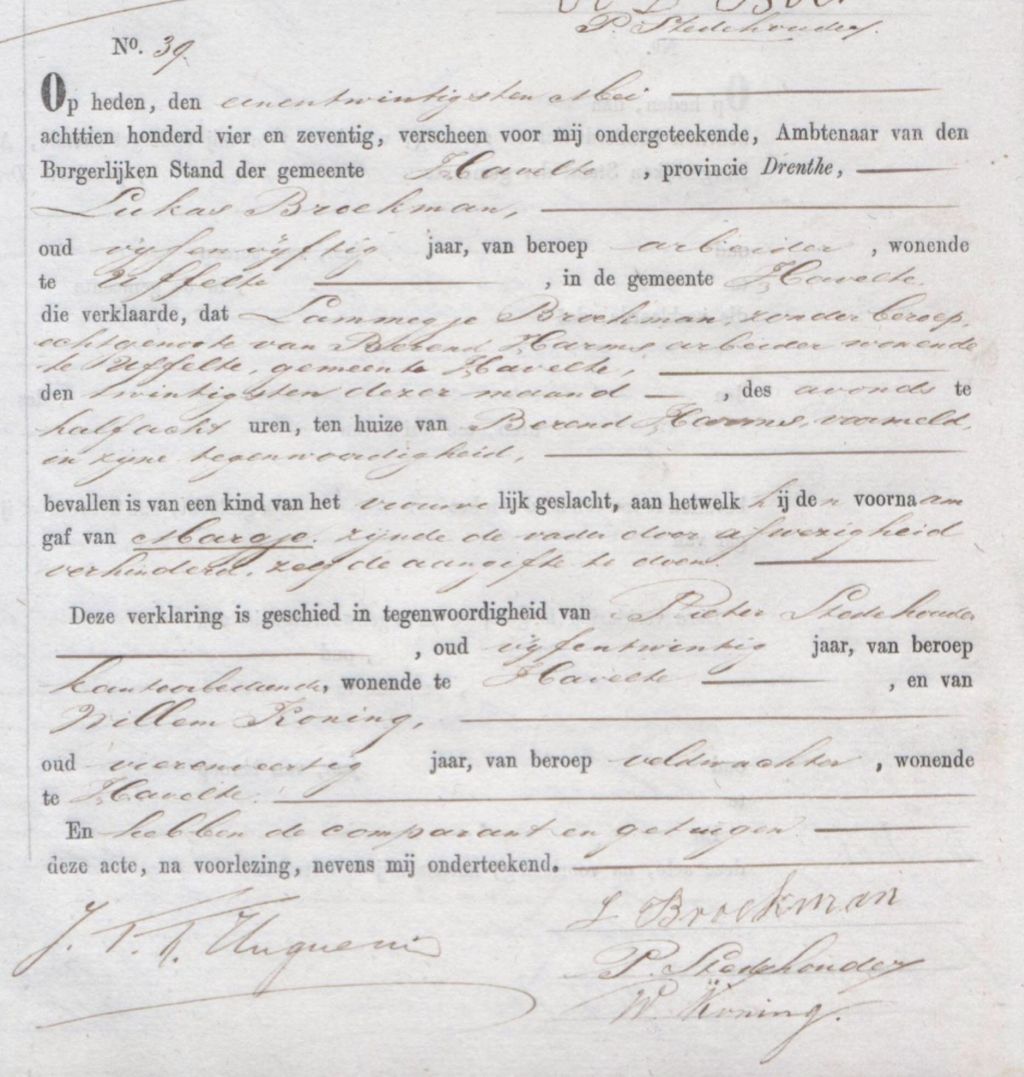 P. Stedehouder.
No. 39.
Op heden, den eenentwintigsten Mei
achttien honderd vier en zeventig, verscheen voor mij ondergeteekende, Ambtenaar van den
Burgerlijken Stand der gemeente Havelte, provincie Drenthe,
Lukas Broekman,
oud vijfenvijftig jaar, van beroep arbeider, wonende
te Uffelte, in de gemeente Havelte,
die verklaarde, dat Lammegje Broekman, zonder beroep,
echtgenoote van Berend Harms arbeider wonende
te Uffelte, gemeente Havelte,
den twintigsten dezer maand, des avonds te
half acht uren, ten huize van Berend Harms, voormeld,
in zijne tegenwoordigheid,
bevallen is van een kind van het vrouwelijk geslacht, aan hetwelk hij den voornaam
gaf van Margje. zijnde de vader door afwezigheid
verhinderd, zelf de aangifte te doen.
Deze verklaring is geschied in tegenwoordigheid van Pieter Stedehouder
, oud vijfentwintig jaar, van beroep
kantoorbediende, wonende te Havelte, en van
Willem Koning,
oud vierenveertig jaar, van beroep veldwachter, wonende
te Havelte.
En hebben de comparant en getuigen
deze acte, na voorlezing, nevens mij onderteekend.
L Broekman
P. Stedehouder
W. Koning.